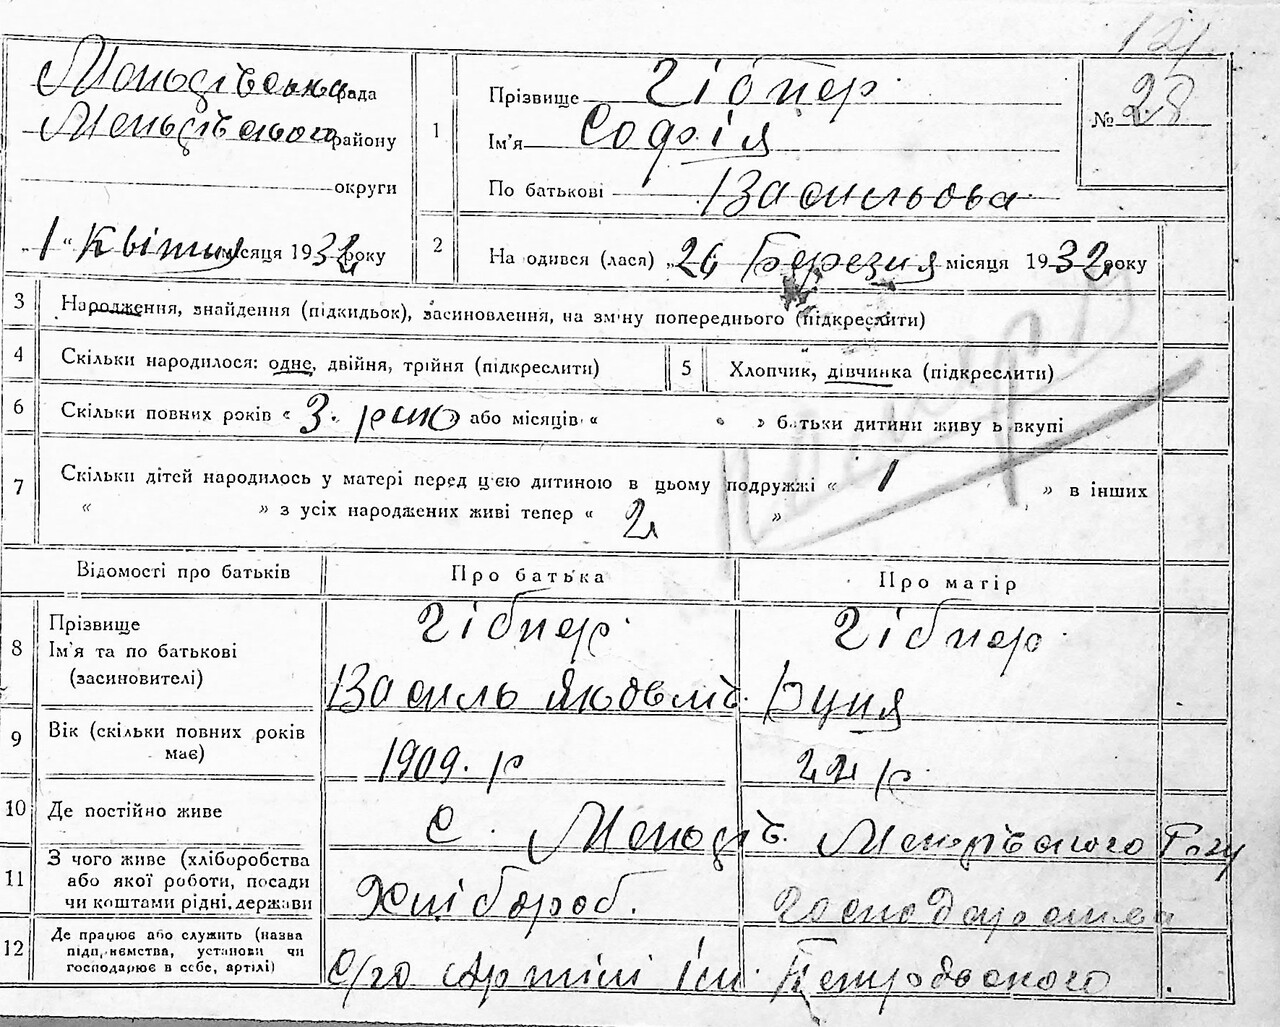 121
рада
району
округи
„1“ Квітня місяця 1932 року
1
Прізвище Гібнер
Ім'я Софія
По батькові Васильова
№ 28
2
На одився (лася) „26 Березня місяця 1932 року
3 Народження, знайдення (підкидьок), засиновлення, на зміну попереднього (підкреслити)
4 Скільки народилося: одне, двійня, трійня (підкреслити)
5 Хлопчик, дівчинка (підкреслити)
6 Скільки повних років « 3. або місяців « » батьки дитини живу ь вкупі
7 Скільки дітей народилось у матері перед цією дитиною в цьому подружжі « 1 » в інших
« » з усіх народжених живі тепер « 2 »
Відомості про батьків Про батька Про матір
8 Прізвище
Ім'я та по батькові
(засиновителі)
Гібнер
Василь Яковлів.
Гібнер
9 Вік (скільки повних років
має)
1909. р
22 р.
10 Де постійно живе
с.
11 З чого живе (хліборобства
або якої роботи, посади
чи коштами рідні, держави
Хлібороб.
12 Де працює або служить (назва
підприємства, установи чи
господарює в себе, артілі)
С/го Артілі Ім. Петровського